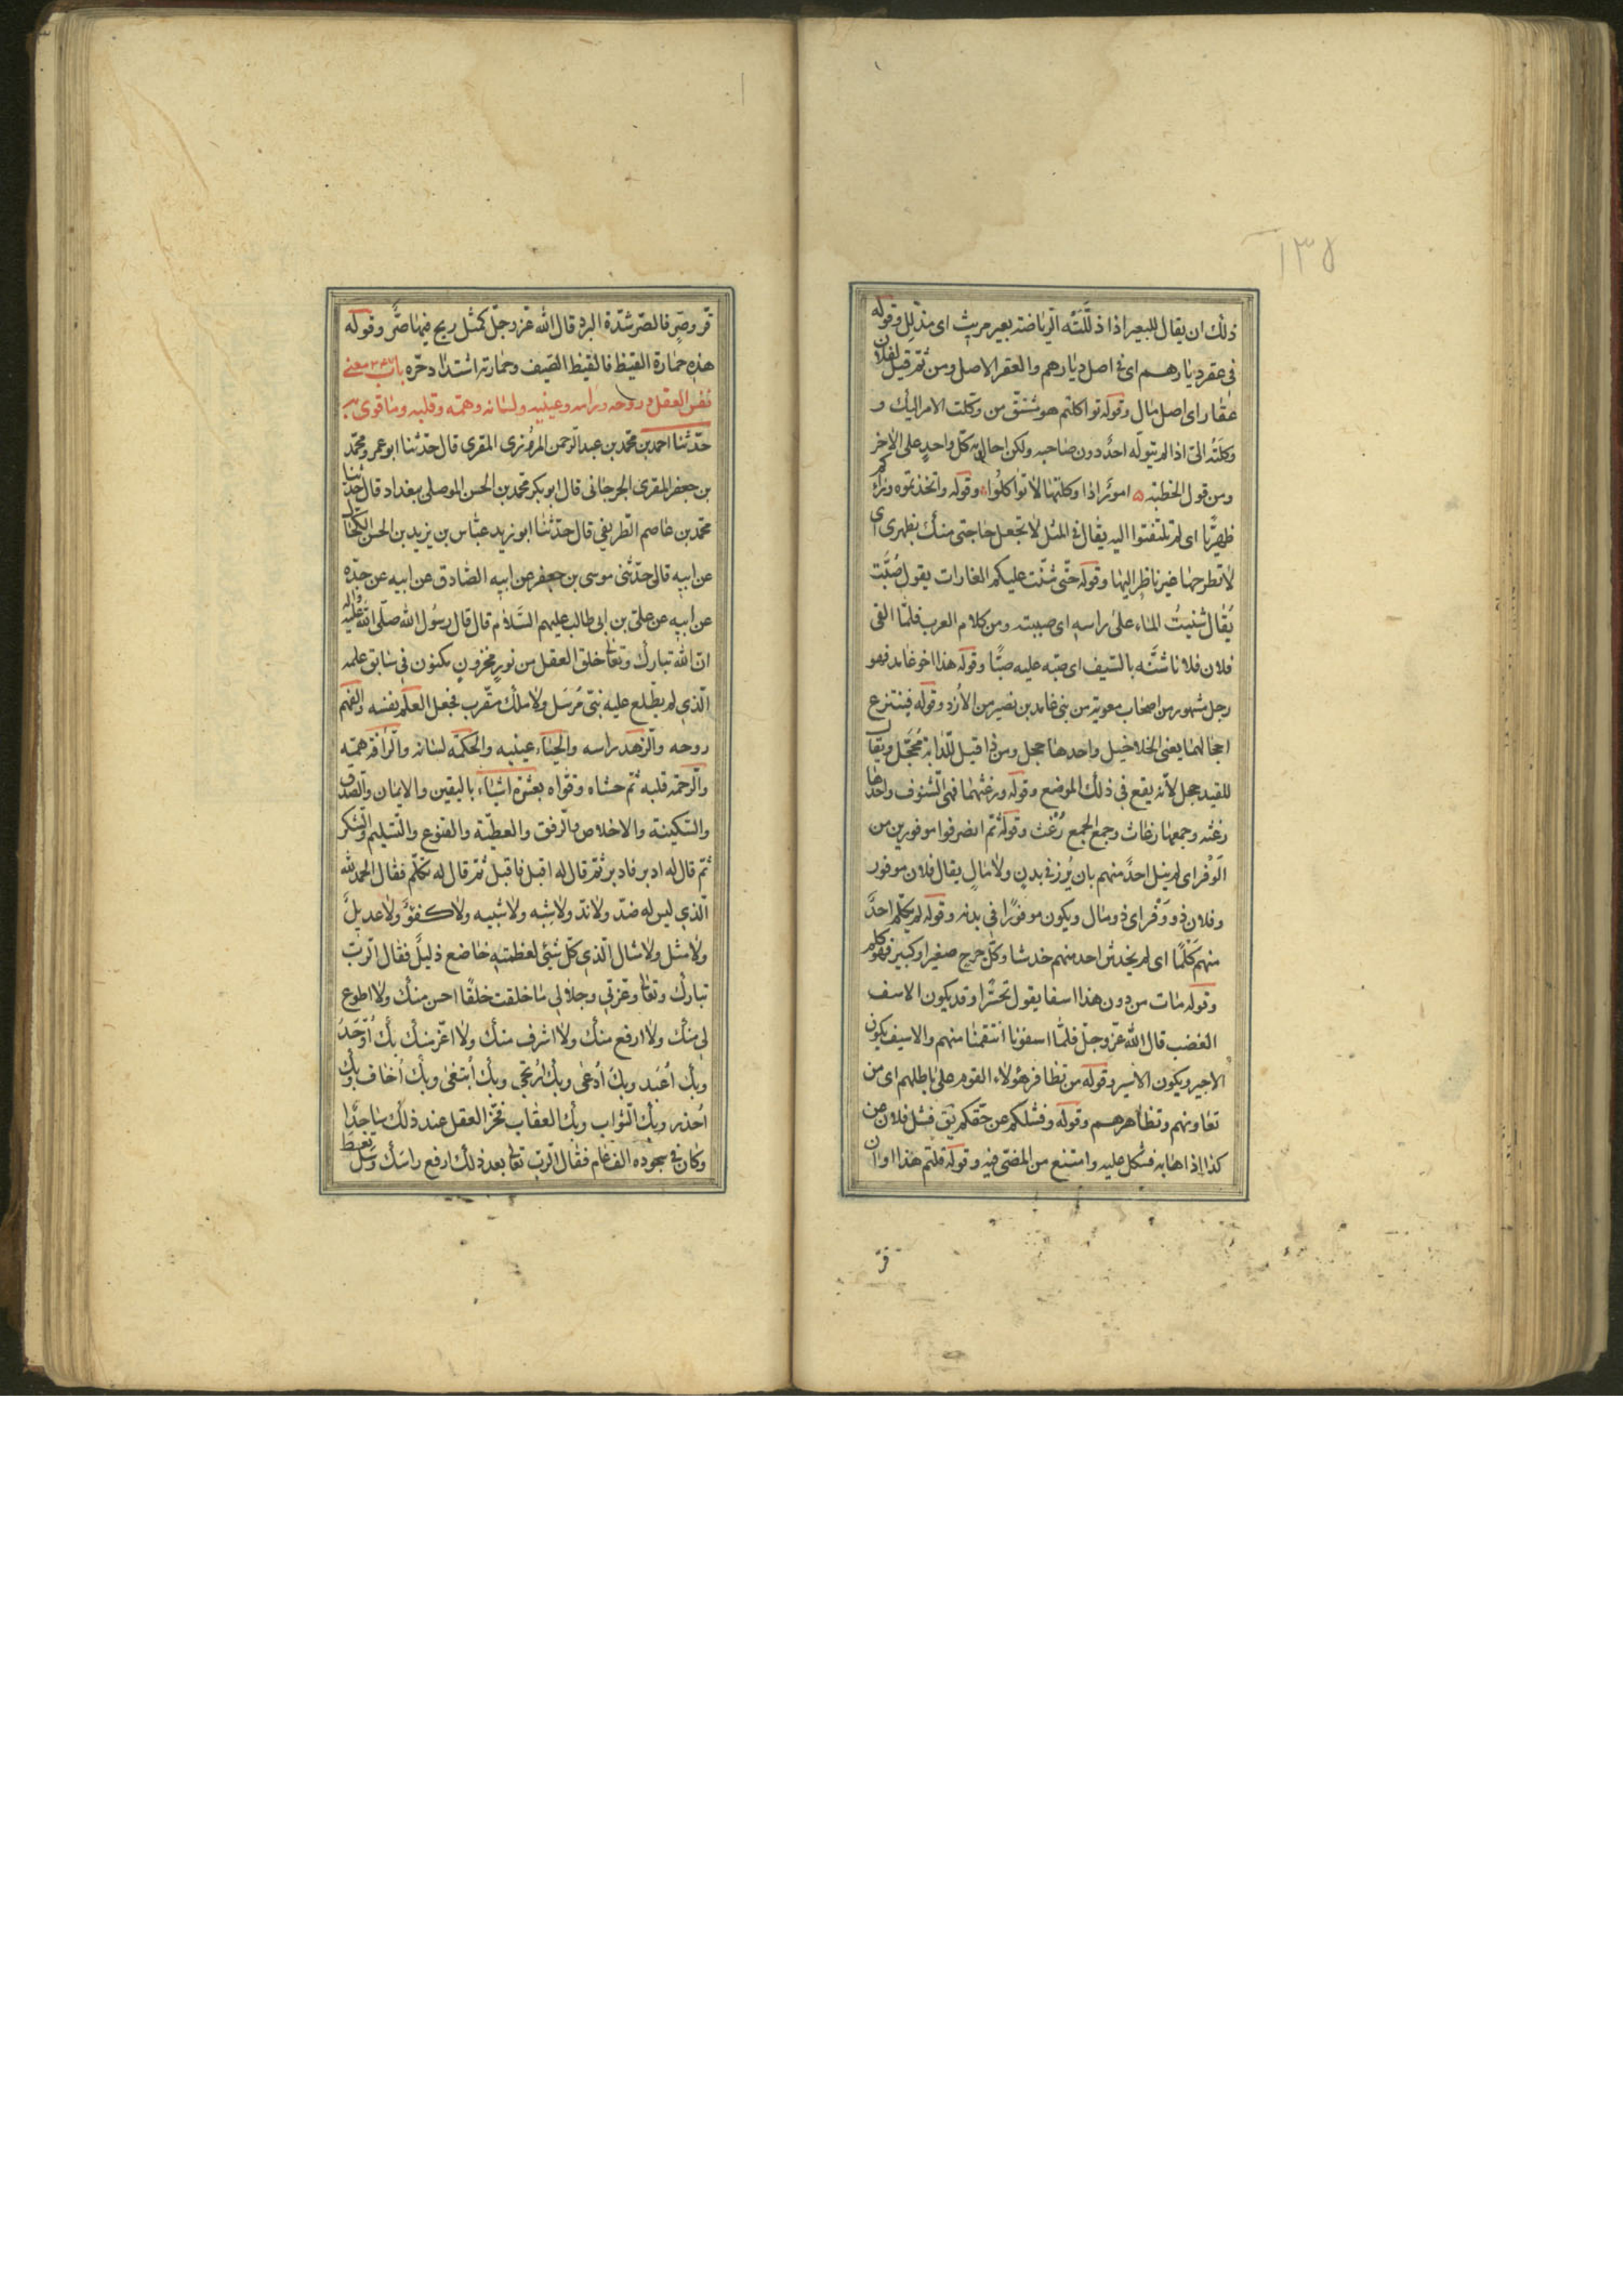 ١٣٥
ذلك ان يقال للبعير اذا ذلّلته الرياضة بعير مديّث اى مذلّل وقوله
فى عقر ديارهم اى فى اصل ديارهم والعقر الاصل ومن ثمّ قيل لفلان
عقار اى اصل مال وقوله تواكلتم هو مشتقّ من وكلت الامر اليك و
وكلته الىّ اذا لم يتولّه احد دون صاحبه ولكن احال به كلّ واحد على الاخر
ومن قول الحطيئة امور اذا واكلتها لا تواكلوا وقوله واتخذتموه وراءكم
ظهريّا اى لم تلتفتوا اليه يقال فى المثل لا تجعل حاجتى منك بظهر اى
لا تطرحها غير ناظر اليها وقوله حتّى شنّت عليكم الغارات يقول صبّت
يقال شننت الماء على راسه اى صببته ومن كلام العرب فلمّا القى
فلان فلانا شنّه بالسّيف اى صبّه عليه صبّا وقوله هذا اخو غامد فهو
رجل مشهور من اصحاب معوية من بنى غامد بن نصير من الأزد وقوله فينتزع
احجالهما يعنى الخلاخيل واحدها حجل ومن ذا قيل للدّابة محجّل ويقال
للقيد حجل لأنه يقع فى ذلك الموضع وقوله ورعثهما فهى الشنوف واحدها
رعثه وجمعها رعاث وجمع الجمع رُعُث وقوله ثمّ انصرفوا موفورين من
الوَفْر اى لم ينل احد منهم بان يُرزء فى بدن ولا مال يقال فلان موفور
وفلان ذو وَفْر اى ذو مال ويكون موفورًا فى بدنه وقوله لم يكلم احد
منهم كَلْمًا اى لم يخدش احد منهم خدشا وكلّ جرح صغير او كبير فهو كلم
وقوله مات من دون هذا اسفا يقول تحسّرا وقد يكون الاسف
الغضب قال الله عزّ وجلّ فلمّا اسفونا انتقمنا منهم والاسيف يكون
الاجير ويكون الاسير وقوله من تظافر هؤلاء القوم على باطلهم اى من
تعاونهم وتظاهرهم وقوله وفشلكم عن حقّكم يق فشل فلان عن
كذا اذا هابه فنكل عليه وامتنع من المضىّ فيه وقوله قلتم هذا اوان
قرّ
قرّ وصرّ فالصّر شدّة البرد قال الله عزّ وجلّ كمثل ريح فيها صرّ وقوله
هذه حمارة القيظ فالقيظ الصّيف وحمارته اشتداد حرّه باب معنى
نفس العقل وروحه وراسه وعينيه ولسانه وهمّه وقلبه وما قوى به
حدّثنا احمد بن محمّد بن عبد الرحمن المروزى المقرى قال حدّثنا ابو عمرو محمّد
بن جعفر المقرى الجرجانى قال ابو بكر محمد بن الحسن الموصلى ببغداد قال حدثنا
محمّد بن عاصم الطّريفى قال حدّثنا ابو زيد عبّاس بن يزيد بن الحسن الكحّال
عن ابيه قال حدّثنى موسى بن جعفر عن ابيه الصّادق عن ابيه عن جدّه
عن ابيه عن علىّ بن ابى طالب عليهم السّلام قال قال رسول الله صلّى الله عليه واله
انّ الله تبارك وتعالى خلق العقل من نور مخزون مكنون فى سابق علمه
الّذى لم يطّلع عليه نبىّ مُرسَل ولا ملك مقرّب فجعل العلم نفسه والفهم
روحه والزّهد راسه والحياء عينيه والحكمة لسانه والرّافة همّته
والرّحمة قلبه ثمّ حشاه وقوّاه بعشرة اشياء باليقين والايمان والصّدق
والسّكينة والاخلاص والرّفق والعطيّة والقنوع والتّسليم والشّكر
ثمّ قال له ادبر فادبر ثمّ قال له اقبل فاقبل ثمّ قال له تكلّم فقال الحمد لله
الّذى ليس له ضدّ ولا ندّ ولا شبه ولا شبيه ولا كفوٌ ولا عديلٌ
ولا مثل ولا مثال الّذى كلّ شىء لعظمته خاضع ذليلٌ فقال الرّب
تبارك وتعالى وعزتى وجلالى ما خلقت خلقًا احسن منك ولا اطوع
لى منك ولا ارفع منك ولا اشرف منك ولا اعزّ منك بك اُوَحَّدُ
وبك اُعبَد وبك اُدعى وبك اُرتجى وبك اُبتغى وبك اُخاف وبك
اُحذر وبك الثّواب وبك العقاب فخرّ العقل عند ذلك ساجدًا
وكان فى سجوده الف عام فقال الرّب تعالى بعد ذلك ارفع راسك وسل تعط